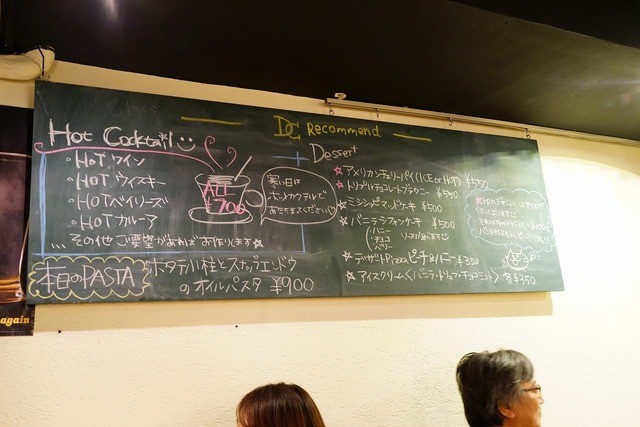 DC Recommend
Hot Cocktail
HOT ワイン
HOT ウィスキー
HOT ベイリーズ
HOT カルーア
...その他ご要望があればお作りします☆
ALL
¥700
寒い日は
ホットカクテルで
あたたまってください♡
本日のPASTA
ホタテ小柱とスナップエンドウ
のオイルパスタ ¥900
Dessert
☆アメリカンチェリーパイ(ICE or HOT) ¥550
☆トリプルチョコレートブラウニー ¥550
☆ミシシッピーマッドケーキ ¥500
☆バニラシフォンケーキ ¥500
・ハニー
・チョコ
・ベリー
ソースが選べます
☆デザートPizza ピーチ&ハニー ¥350
☆アイスクリーム<バニラ・トリュフ・チョコミント> 各¥350
again